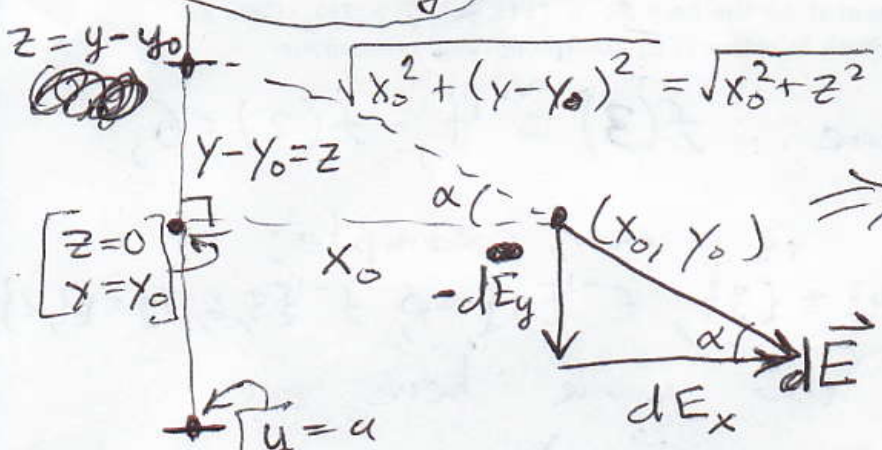 z = y - y₀
√(x₀² + (y - y₀)²) = √(x₀² + z²)
y - y₀ = z
α
(x₀, y₀)
[z = 0
y = y₀]
x₀
-dEy
α
dE⃗
dEₓ
y = a